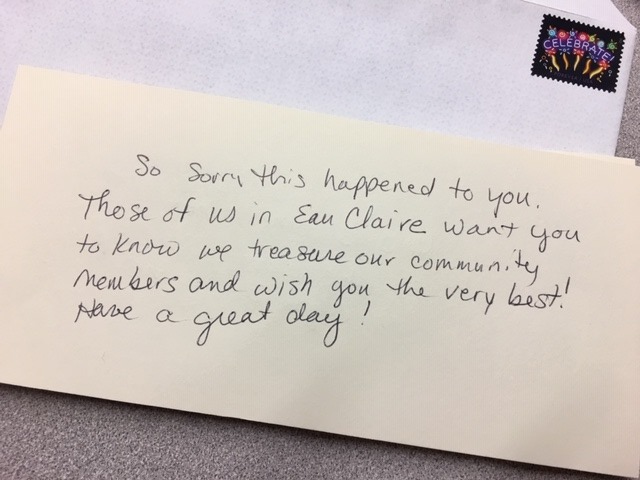 CELEBRATE!
So Sorry this happened to you.
Those of us in Eau Claire want you
to know we treasure our community
members and wish you the very best!
Have a great day!